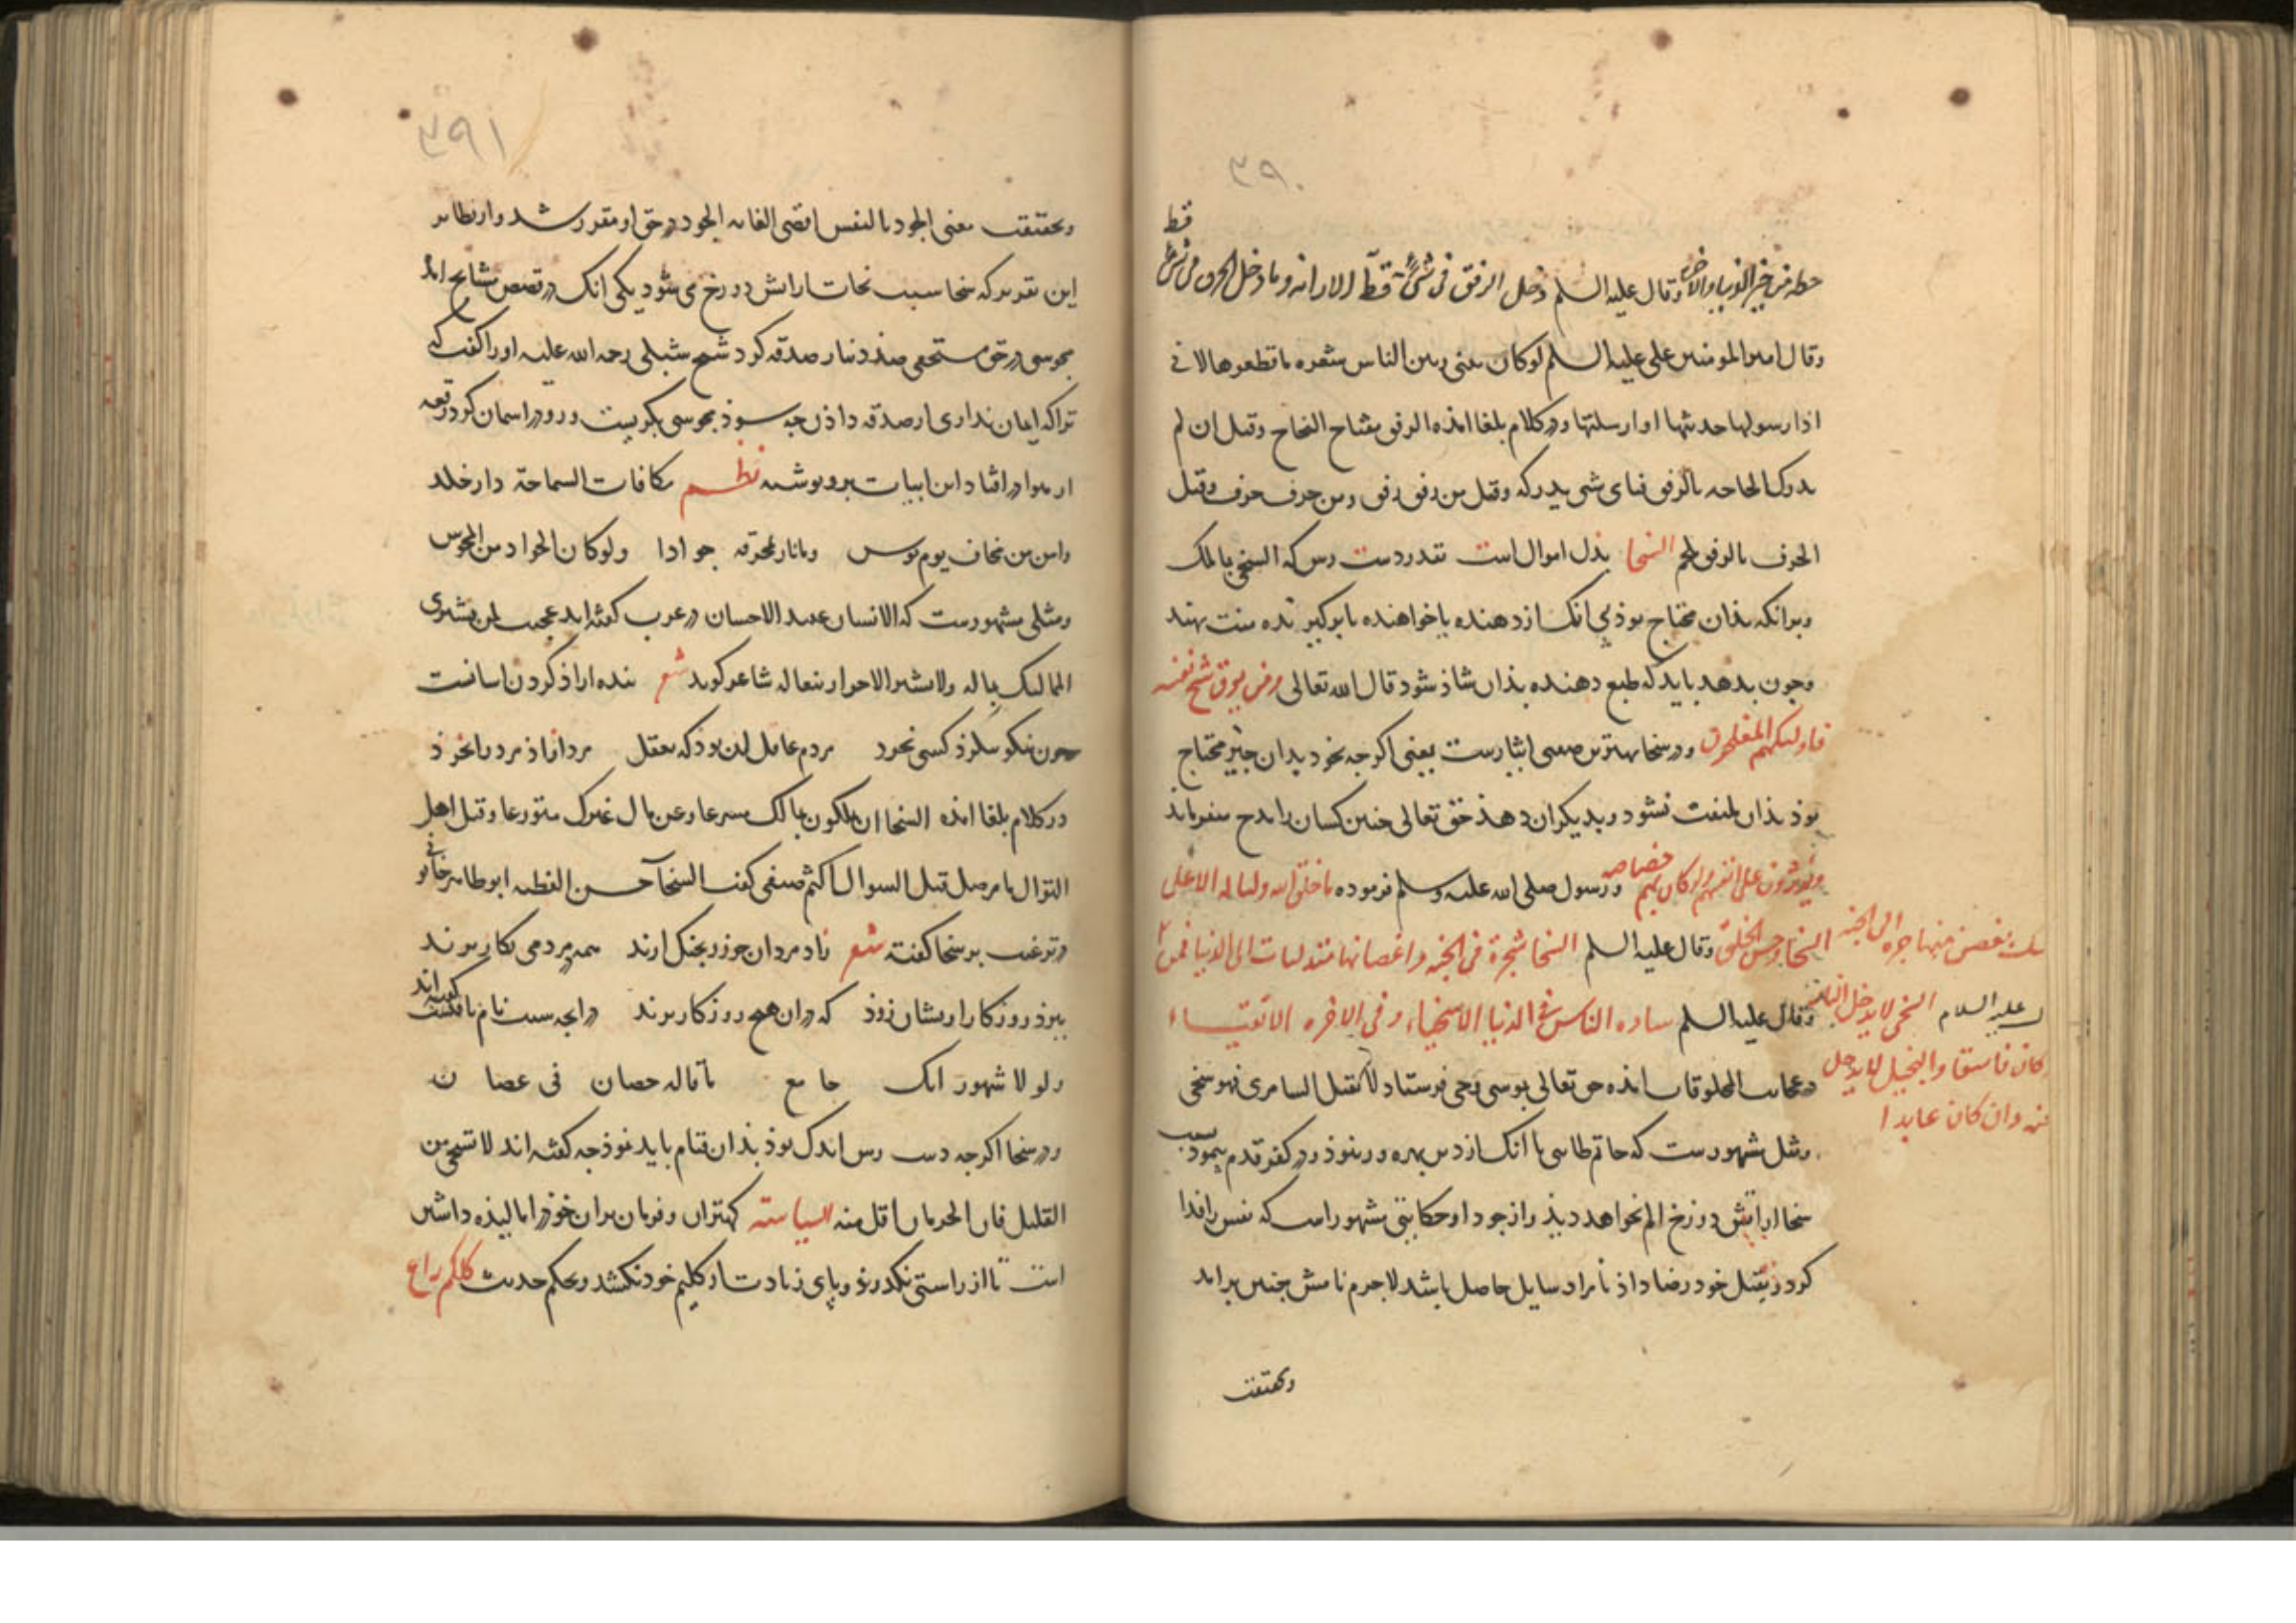 ٣٩٠
قط
حظه من خير الدنيا والاخرة وقال عليه السلم دخل الرفق فى شئ قط الا زانه وما دخل الخرق فى شئ
وقال امير المومنين على عليه السلم لو كان بينى وبين الناس شعره ما قطعوها لانى
اذا ارسولها جذبتها او ارسلتها ودر كلام بلغا امذه الرفق مفتاح النجاح وقيل ان لم
يدرك الحاجه بالرفق فباى شى يدركه وقيل من رفق رفق ومن خرف خرف وقيل
الحرف بالرفق يلحم السخا بذل اموال است بقدر دست رس كه السخى بما ملك
وبرانكه بذان محتاج بوذ بى انك از دهنده يا خواهنده يا بر كيرنده منت نهند
وجون بدهد بايد كه طبع دهنده بذان شاذ شود قال الله تعالى ومن يوق شح نفسه
فاوليك هم المفلحون ودر سخا بهترين صفتى ايثارست يعنى اكرجه بخود بدان چيز محتاج
بوذ بذان ملتفت نشود وبديكران دهذ حق تعالى چنين كسان را مدح ميفرمايد
ويوثرون على انفسهم ولو كان بهم خصاصه ورسول صلى الله عليه وسلم فرموده ما خلق الله وليا له الا على
السخا وحسن الخلق وقال عليه السلم السخا شجرة فى الجنه واغصانها متدليات الى الدنيا فمن
بغصن منها جره الى الجنه
وقال عليه السلم ساده الناس فى الدنيا الاسخياء وفى الاخره الاتقياء
عليه السلام السخى لا يدخل النار
در عجايب المخلوقات امذه حق تعالى بموسى وحى فرستاد لا تقتل السامرى فهو سخى
كان فاسقا والبخيل لا يدخل
وان كان عابدا
ومثل مشهورست كه حاتم طايى با انك از دين بهره ور نبوذ ودر كفر قدم پيمود بسبب
سخا از اتش دوزخ الم نخواهد ديذ واز جود او حكايتى مشهور است كه نفس را فدا
كرد و بقتل خود رضا داذ تا مراد سايل حاصل باشد لاجرم نامش بجنين برامد
وبحقيقت
٣٩١
وبحقيقت معنى الجود بالنفس اقصى الغايه الجود در حق او مقرر شد واز نظاير
اين تقرير كه سخا سبب نجات از اتش دوزخ مى شود يكى انك در قصص مشايخ امذ
مجوسى در حق مستحقى صذ دينار صدقه كرد شيخ شبلى رحمه الله عليه او را كفت كه
ترا كه ايمان ندارى از صدقه داذن چه سوذ مجوسى بكريست ورو در اسمان كرد رقعه
از هوا در افتاد اين ابيات برو نوشته نظم مكافات السماحة دار خلد
وامن من مخاف يوم بوس وما نار بمحرقه جوادا ولو كان الجواد من المجوس
ومثلى مشهورست كه الانسان عبيد الاحسان در عرب كفته اند عجبت لمن يشترى
المماليك بماله ولا يشترى الاحرار بفعاله شاعر كويد شعر بنده ازاذ كردن اسانست
چون نيكو بنكرذ كسى بخرد مردم عاقل ان بوذ كه بعقل مرد ازاذ مرد را بخرذ
در كلام بلغا امذه السخا ان تكون بمالك متبرعا وعن مال غيرك متورعا وقيل اجل
النوال ما وصل قبل السوال اكثم صيفى كفت السخا حسن الفطنه ابو طاهر خاتونى
در ترغيب بر سخا كفته شعر زاد مردان جوزر بجنك ارند همه بر مردمى بكار برند
ببرد روزكار ازيشان زوذ كه دران هيچ روزكار برند در انچه بسبب نام نافتست كفته اند
ولو لا شهور انك جامع ما قاله حصان فى غصان
ودر سخا اكرجه دست رس اندك بوذ بذان قيام بايد نموذ چه كفته اند لا تستحى من
القليل فان الحرمان اقل منه السياسته كهتران وفرمان بران خوذ را ماليذه داشتن
است تا از راستى نكدرند وپاى زيادت از كليم خود نكشند وبحكم حديث كلكم راع